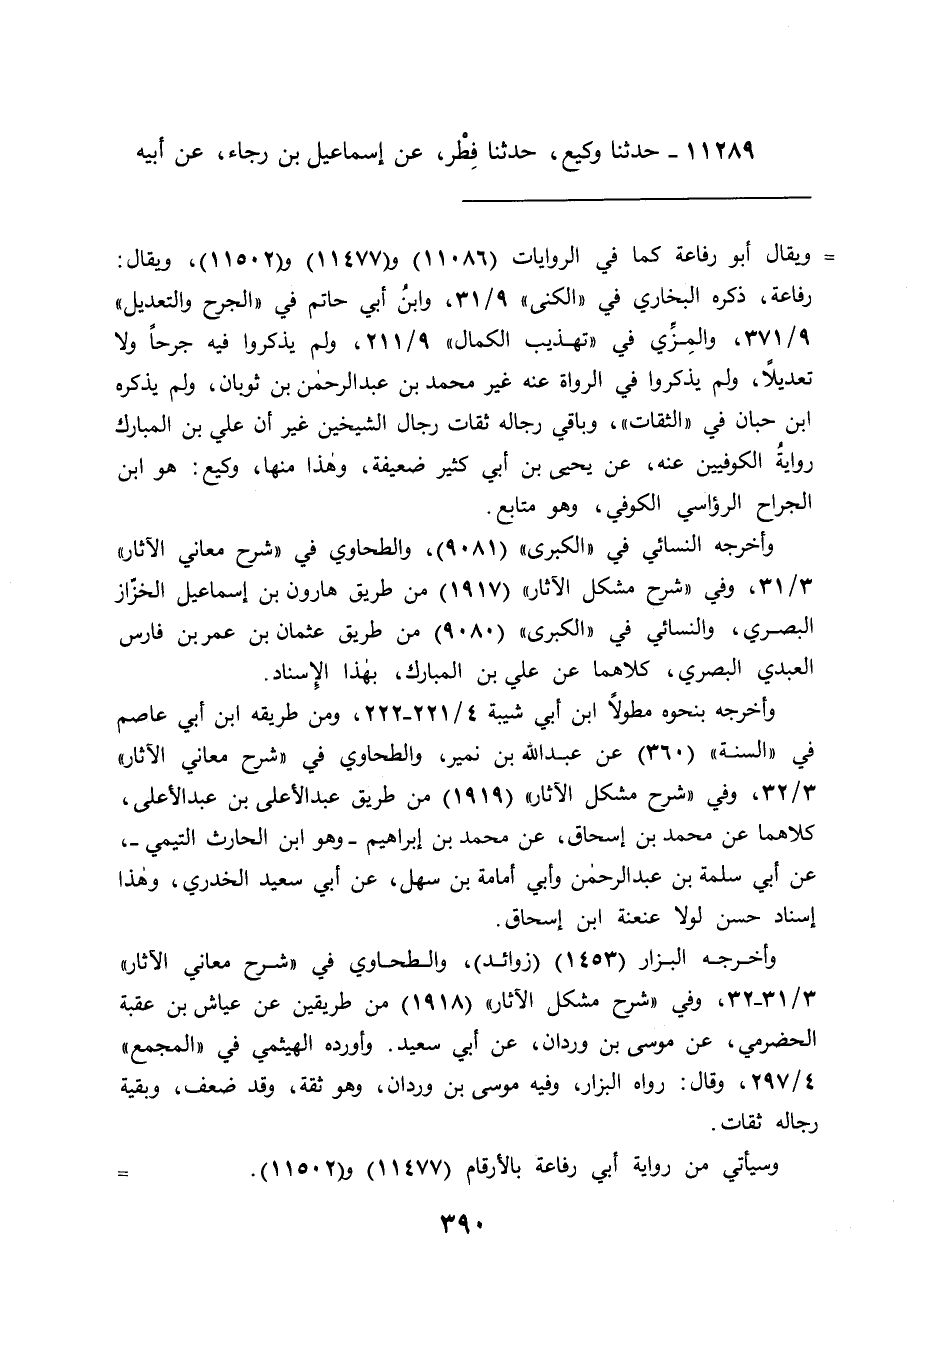 ١١٢٨٩ - حدثنا وكيع، حدثنا فِطْر، عن إسماعيل بن رجاء، عن أبيه
= ويقال أبو رفاعة كما في الروايات (١١٠٨٦) و(١١٤٧٧) و(١١٥٠٢)، ويقال:
رفاعة، ذكره البخاري في «الكنى» ٣١/٩، وابنُ أبي حاتم في «الجرح والتعديل»
٣٧١/٩، والمِزِّي في «تهذيب الكمال» ٢١١/٩، ولم يذكروا فيه جرحاً ولا
تعديلاً، ولم يذكروا في الرواة عنه غير محمد بن عبدالرحمٰن بن ثوبان، ولم يذكره
ابن حبان في «الثقات»، وباقي رجاله ثقات رجال الشيخين غير أن علي بن المبارك
روايةُ الكوفيين عنه، عن يحيى بن أبي كثير ضعيفة، وهٰذا منها، وكيع: هو ابن
الجراح الرؤاسي الكوفي، وهو متابع.
وأخرجه النسائي في «الكبرى» (٩٠٨١)، والطحاوي في «شرح معاني الآثار»
٣١/٣، وفي «شرح مشكل الآثار» (١٩١٧) من طريق هارون بن إسماعيل الخزّاز
البصري، والنسائي في «الكبرى» (٩٠٨٠) من طريق عثمان بن عمر بن فارس
العبدي البصري، كلاهما عن علي بن المبارك، بهٰذا الإِسناد.
وأخرجه بنحوه مطولاً ابن أبي شيبة ٢٢١/٤-٢٢٢، ومن طريقه ابن أبي عاصم
في «السنة» (٣٦٠) عن عبدالله بن نمير، والطحاوي في «شرح معاني الآثار»
٣٢/٣، وفي «شرح مشكل الآثار» (١٩١٩) من طريق عبدالأعلى بن عبدالأعلى،
كلاهما عن محمد بن إسحاق، عن محمد بن إبراهيم -وهو ابن الحارث التيمي-،
عن أبي سلمة بن عبدالرحمٰن وأبي أمامة بن سهل، عن أبي سعيد الخدري، وهٰذا
إسناد حسن لولا عنعنة ابن إسحاق.
وأخرجه البزار (١٤٥٣) (زوائد)، والطحاوي في «شرح معاني الآثار»
٣١/٣-٣٢، وفي «شرح مشكل الآثار» (١٩١٨) من طريقين عن عياش بن عقبة
الحضرمي، عن موسى بن وردان، عن أبي سعيد. وأورده الهيثمي في «المجمع»
٢٩٧/٤، وقال: رواه البزار، وفيه موسى بن وردان، وهو ثقة، وقد ضعف، وبقية
رجاله ثقات.
وسيأتي من رواية أبي رفاعة بالأرقام (١١٤٧٧) و(١١٥٠٢). =
٣٩٠